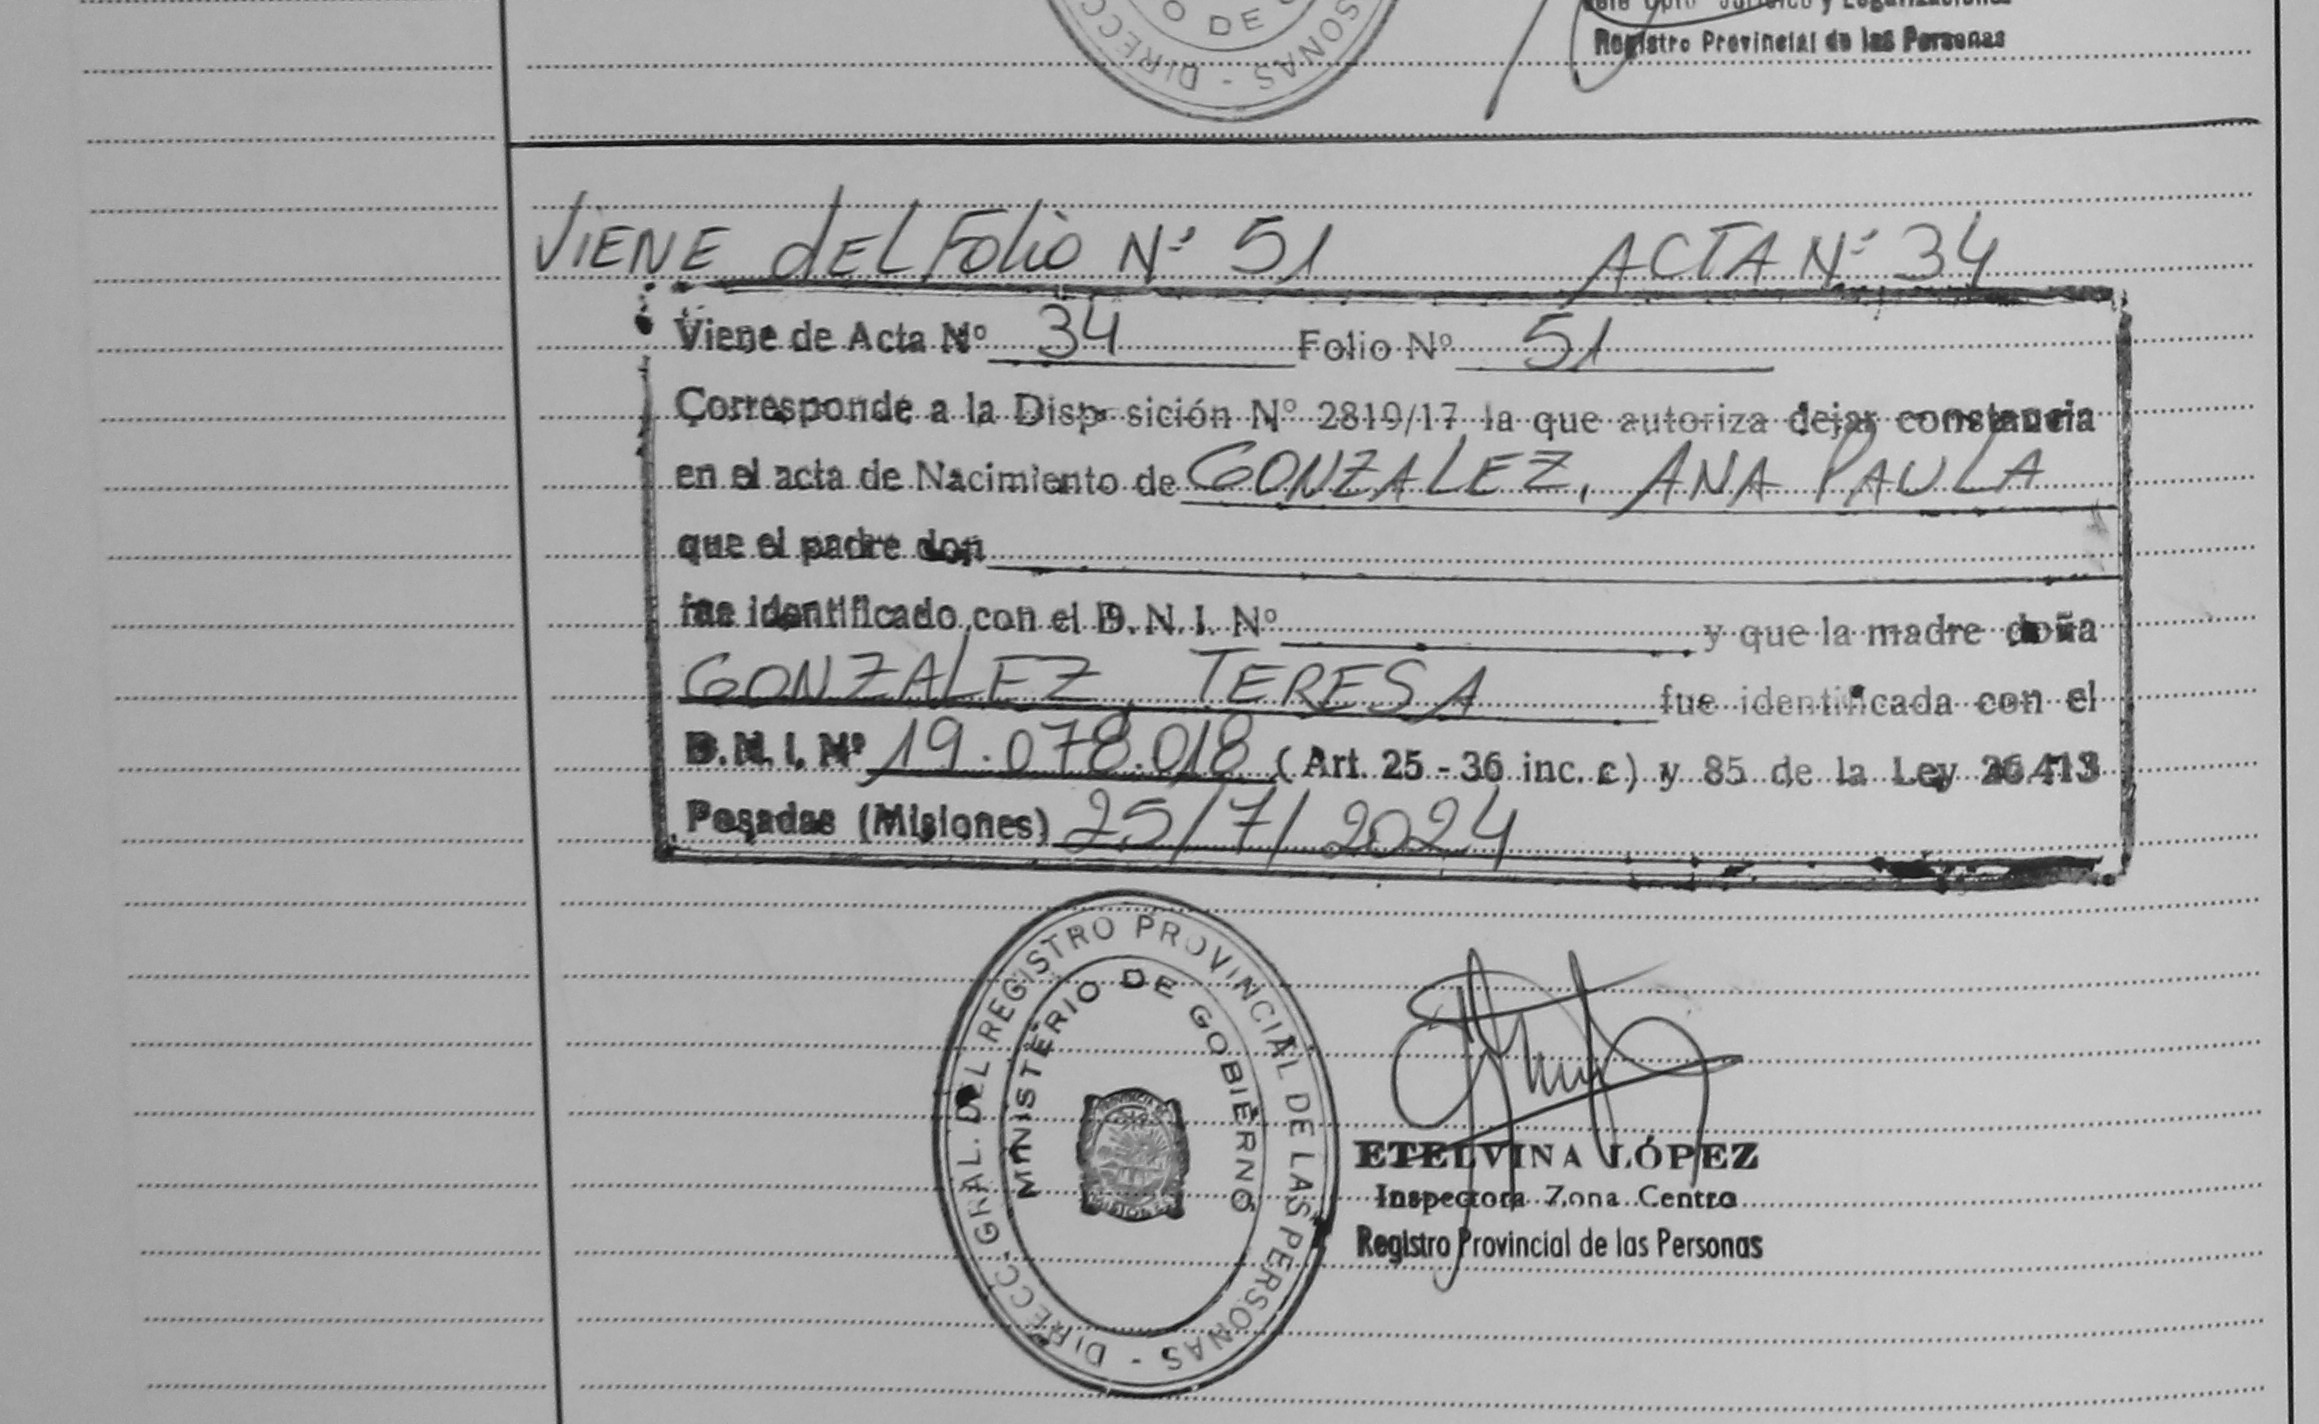 O DE
DIRECC SONAS -
Jurídico y Legalizaciones
Registro Provincial de las Personas
VIENE dEL Folio Nº 51 ACTA Nº 34
Viene de Acta Nº 34 Folio Nº 51
Corresponde a la Disp sición Nº 2819/17 la que autoriza dejar constancia
en el acta de Nacimiento de GONZALEZ, ANA PAULA
que el padre don
fue identificado con el D.N.I. Nº y que la madre doña
GONZALEZ, TERESA fue identificada con el
D.N.I. Nº 19.078.018 (Art. 25 - 36 inc. c) y 85 de la Ley 26.413
Posadas (Misiones) 25/7/2024
DIRECC. GRAL. DEL REGISTRO PROVINCIAL DE LAS PERSONAS -
MINISTERIO DE GOBIERNO
PROVINCIA DE
MISIONES
ETELVINA LÓPEZ
Inspectora Zona Centro
Registro Provincial de las Personas